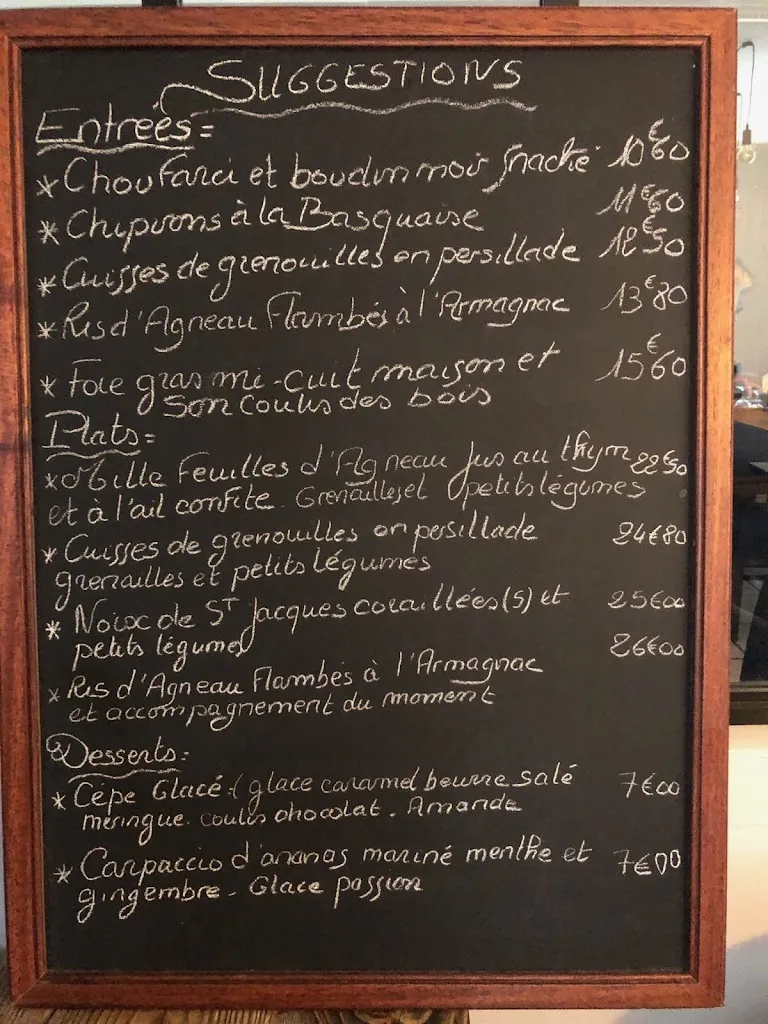 SUGGESTIONS
Entrées=
* Chou Farci et boudin noir Snacké 10€60
* Chipirons à la Basquaise 11€60
* Cuisses de grenouilles en persillade 12€50
* Ris d'Agneau Flambés à l'Armagnac 13€80
* Foie gras mi-cuit maison et 15€60
Son Coulis des bois
Plats=
* Mille Feuilles d'Agneau Jus au thym 22€50
et à l'ail confite. Grenailles et petits légumes
* Cuisses de grenouilles en persillade 24€80
grenailles et petits légumes
* Noix de ST Jacques coraillées(5) et 25€00
petits légumes 26€00
* Ris d'Agneau Flambés à l'Armagnac
et accompagnement du moment
Desserts=
* Cèpe Glacé (glace caramel beurre salé 7€00
meringue. coulis chocolat. Amande
* Carpaccio d'ananas mariné menthe et 7€00
gingembre - Glace passion